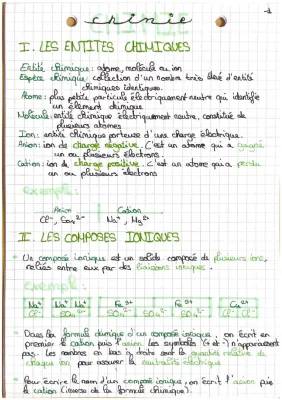 chimie
I. LES ENTITES CHIMIQUES
Entité chimique: atome, molécule ou ion
Espèce chimique: collection d'un nombre très élevé d'entité
chimiques identiques.
Atome: plus petite particule électriquement neutre qui identifie
un élément chimique
Molécule: entité chimique électriquement neutre, constituée de
plusieurs atomes
Ion: entité chimique porteuse d'une charge électrique.
Anion: ion de charge négative. C'est un atome qui a gagné
un ou plusieurs électrons.
Cation: ion de charge positive. C'est un atome qui a perdu
un ou plusieurs électrons
exemple:
Anion Cation
II. LES COMPOSES IONIQUES
Un composé ionique est un solide composé de plusieurs ions,
reliés entre eux par des liaisons ioniques.
exemple:
Na+ Na+ Na+ Fe 2+ Fe 3+
Cl- SO4 2-
Dans la formule chimique d'un composé ionique, on écrit en
premier le cation puis l'anion. Les symboles (+ et -) n'apparaissent
pas. Les nombres en bas à droite sont la quantité relative de
chaque ion pour assurer la neutralité électrique
Pour écrire le nom d'un composé ionique, on écrit l'anion puis
le cation (inverse de la formule chimique).